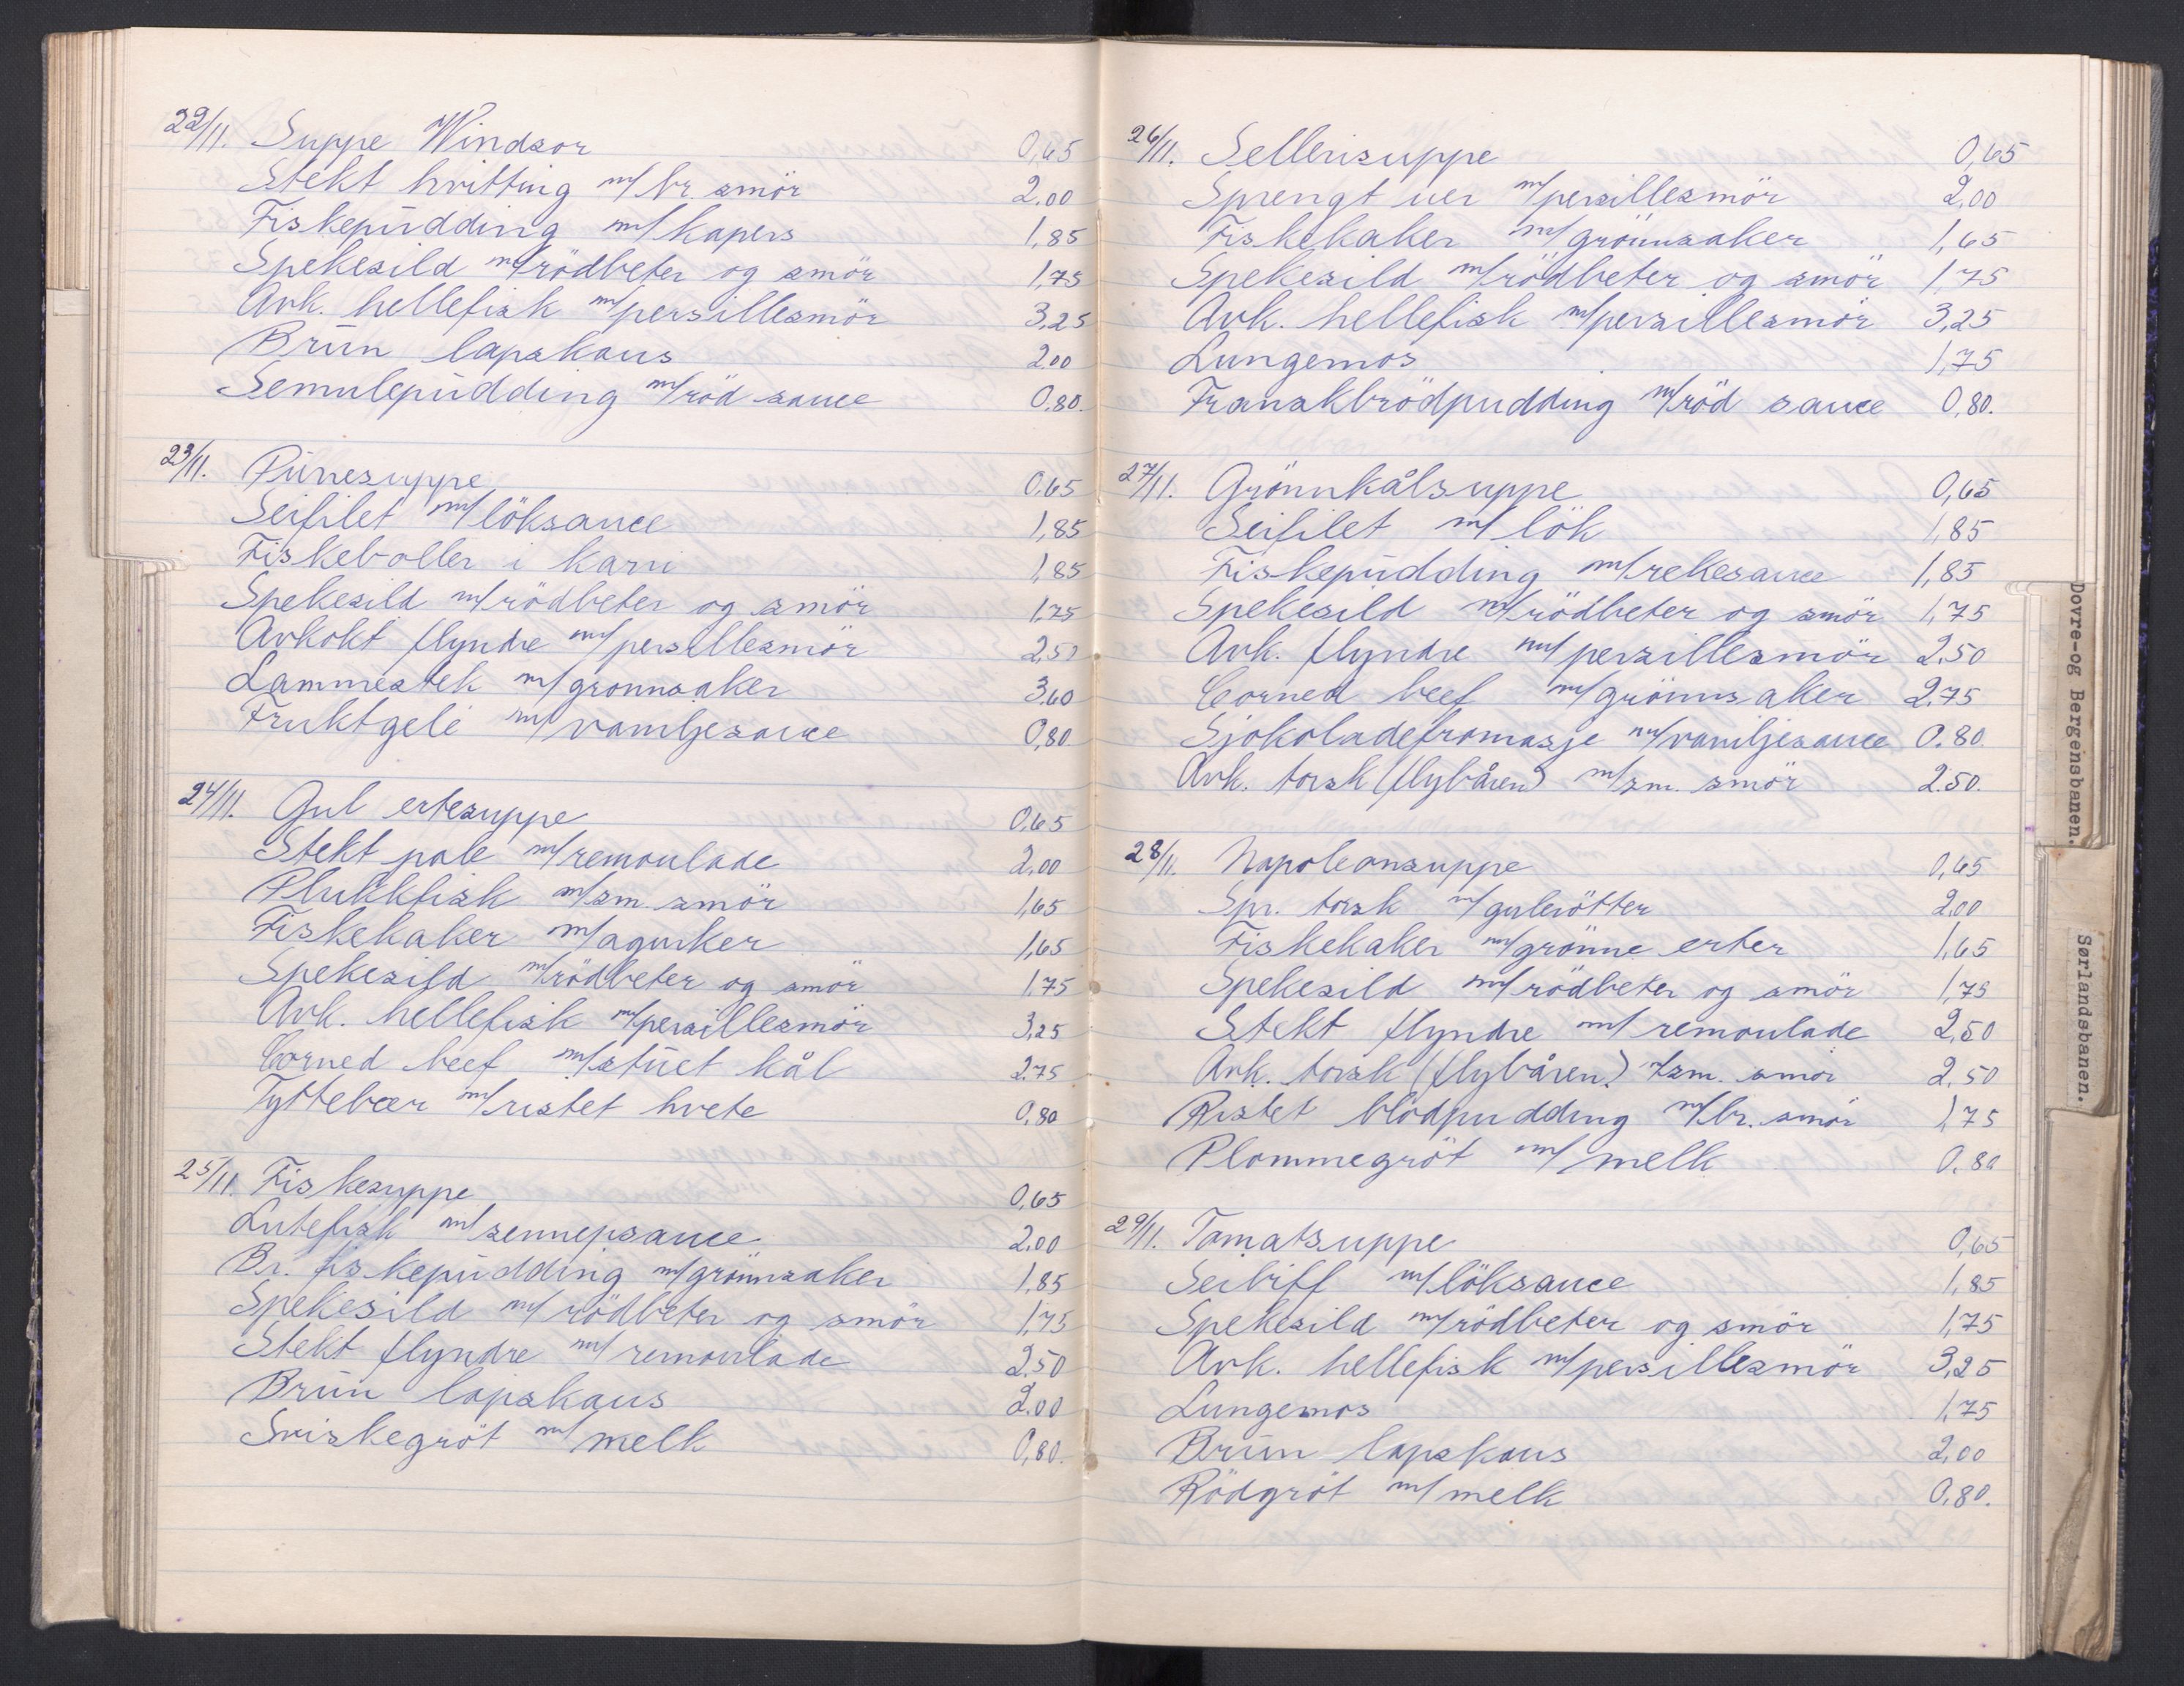 22/11. Suppe Windsor 0,65
Stekt hvitting m/br. smör 2,00
Fiskepudding m/kapers 1,85
Spekesild m/rödbeter og smör 1,75
Avk. hellefisk m/persillesmör 3,25
Brun lapskaus 2,00
Semulepudding m/röd sauce 0,80.
23/11. Purresuppe 0,65
Seifilet m/löksauce 1,85
Fiskeboller i karri 1,85
Spekesild m/rödbeter og smör 1,75
Avkokt flyndre m/persillesmör 2,50
Lammestek m/grønnsaker 3,60
Fruktgelé m/vaniljesauce 0,80
24/11. Gul ertesuppe 0,65
Stekt pale m/remoulade 2,00
Plukkfisk m/sm. smör 1,65
Fiskekaker m/agurker 1,65
Spekesild m/rödbeter og smör 1,75
Avk. hellefisk m/persillesmör 3,25
Corned beef m/stuet kål 2,75
Tyttebær m/ristet hvete 0,80
25/11. Fiskesuppe 0,65
Lutefisk m/sennepsauce 2,00
Br. fiskepudding m/grönnsaker 1,85
Spekesild m/rödbeter og smör 1,75
Stekt flyndre m/remoulade 2,50
Brun lapskaus 2,00
Sviskegröt m/melk 0,80.
26/11. Sellerisuppe 0,65
Sprengt uer m/persillesmör 2,00
Fiskekaker m/grönnsaker 1,65
Spekesild m/rödbeter og smör 1,75
Avk. hellefisk m/persillesmör 3,25
Lungemos 1,75
Franskbrödpudding m/röd sauce 0,80.
27/11. Grönnkålsuppe 0,65
Seifilet m/lök 1,85
Fiskepudding m/rekesauce 1,85
Spekesild m/rödbeter og smör 1,75
Avk. flyndre m/persillesmör 2,50
Corned beef m/grönnsaker 2,75
Sjokoladefromasje m/vaniljesauce 0.80
Avk. torsk (flybåren) m/sm. smör 2.50.
28/11. Napoleonsuppe 0,65
Spr. torsk m/gulerötter 2,00
Fiskekaker m/grönne erter 1,65
Spekesild m/rödbeter og smör 1,75
Stekt flyndre m/remoulade 2,50
Avk. torsk (flybåren) m/sm. smör 2,50
Ristet blodpudding m/br. smör 1,75
Plommegröt m/melk 0.80
29/11. Tomatsuppe 0,65
Seibiff m/löksauce 1,85
Spekesild m/rödbeter og smör 1,75
Avk. hellefisk m/persillesmör 3,25
Lungemos 1,75
Brun lapskaus 2,00
Rödgröt m/melk 0,80.
Dovre-og Bergensbanen.
Sørlandsbanen.